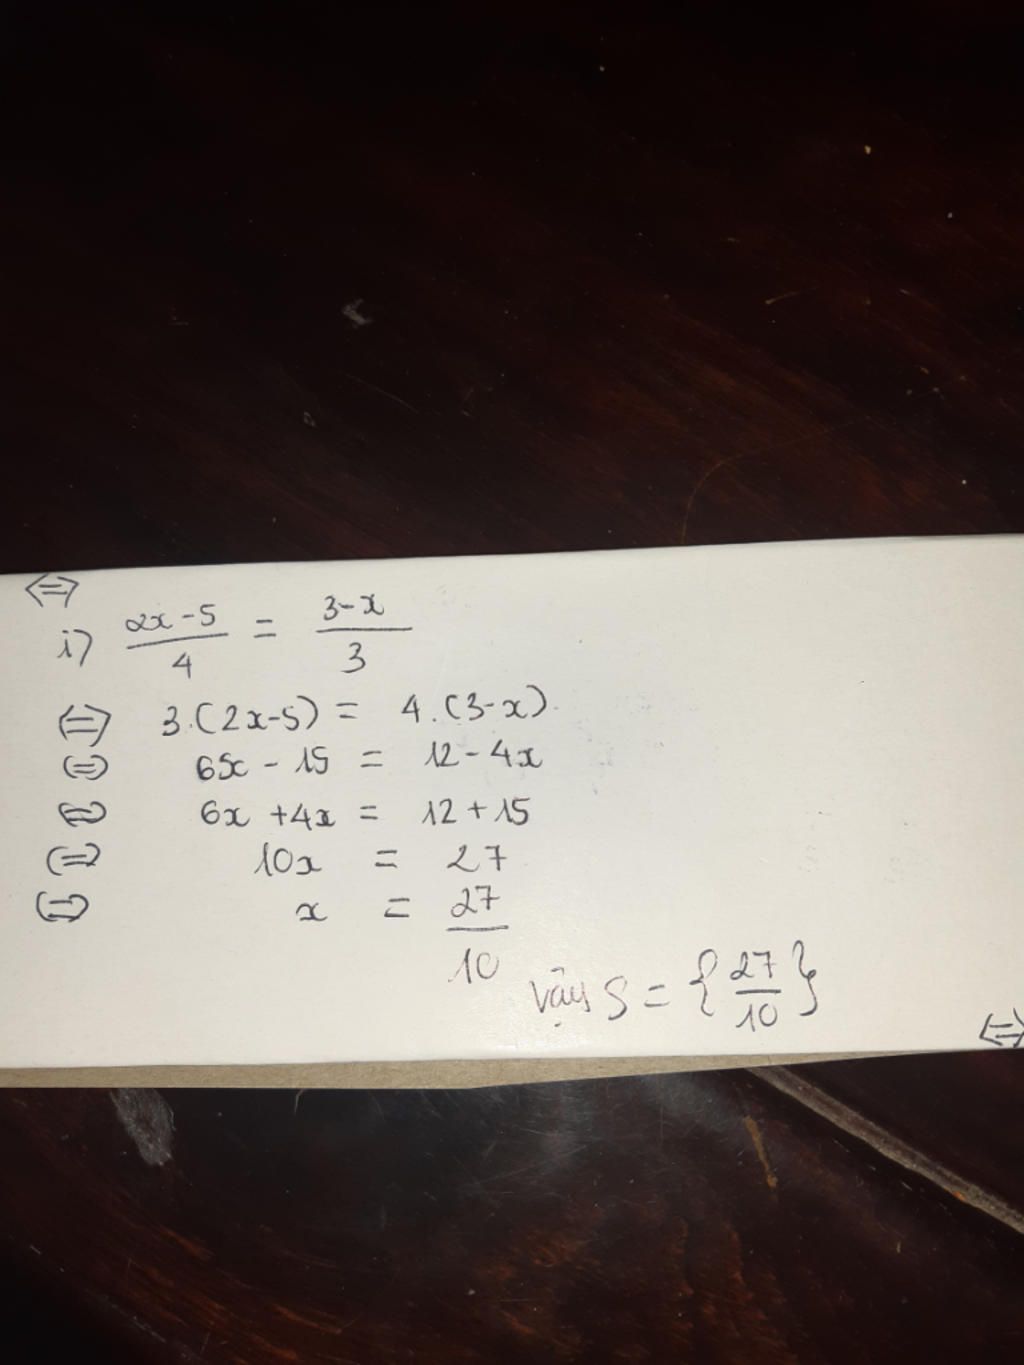 ⇔
i) \frac{2x-5}{4} = \frac{3-x}{3}
⇔ 3.(2x-5) = 4.(3-x)
⇔ 6x - 15 = 12 - 4x
⇔ 6x + 4x = 12 + 15
⇔ 10x = 27
⇔ x = \frac{27}{10}
Vậy S = {\frac{27}{10}}
⇔